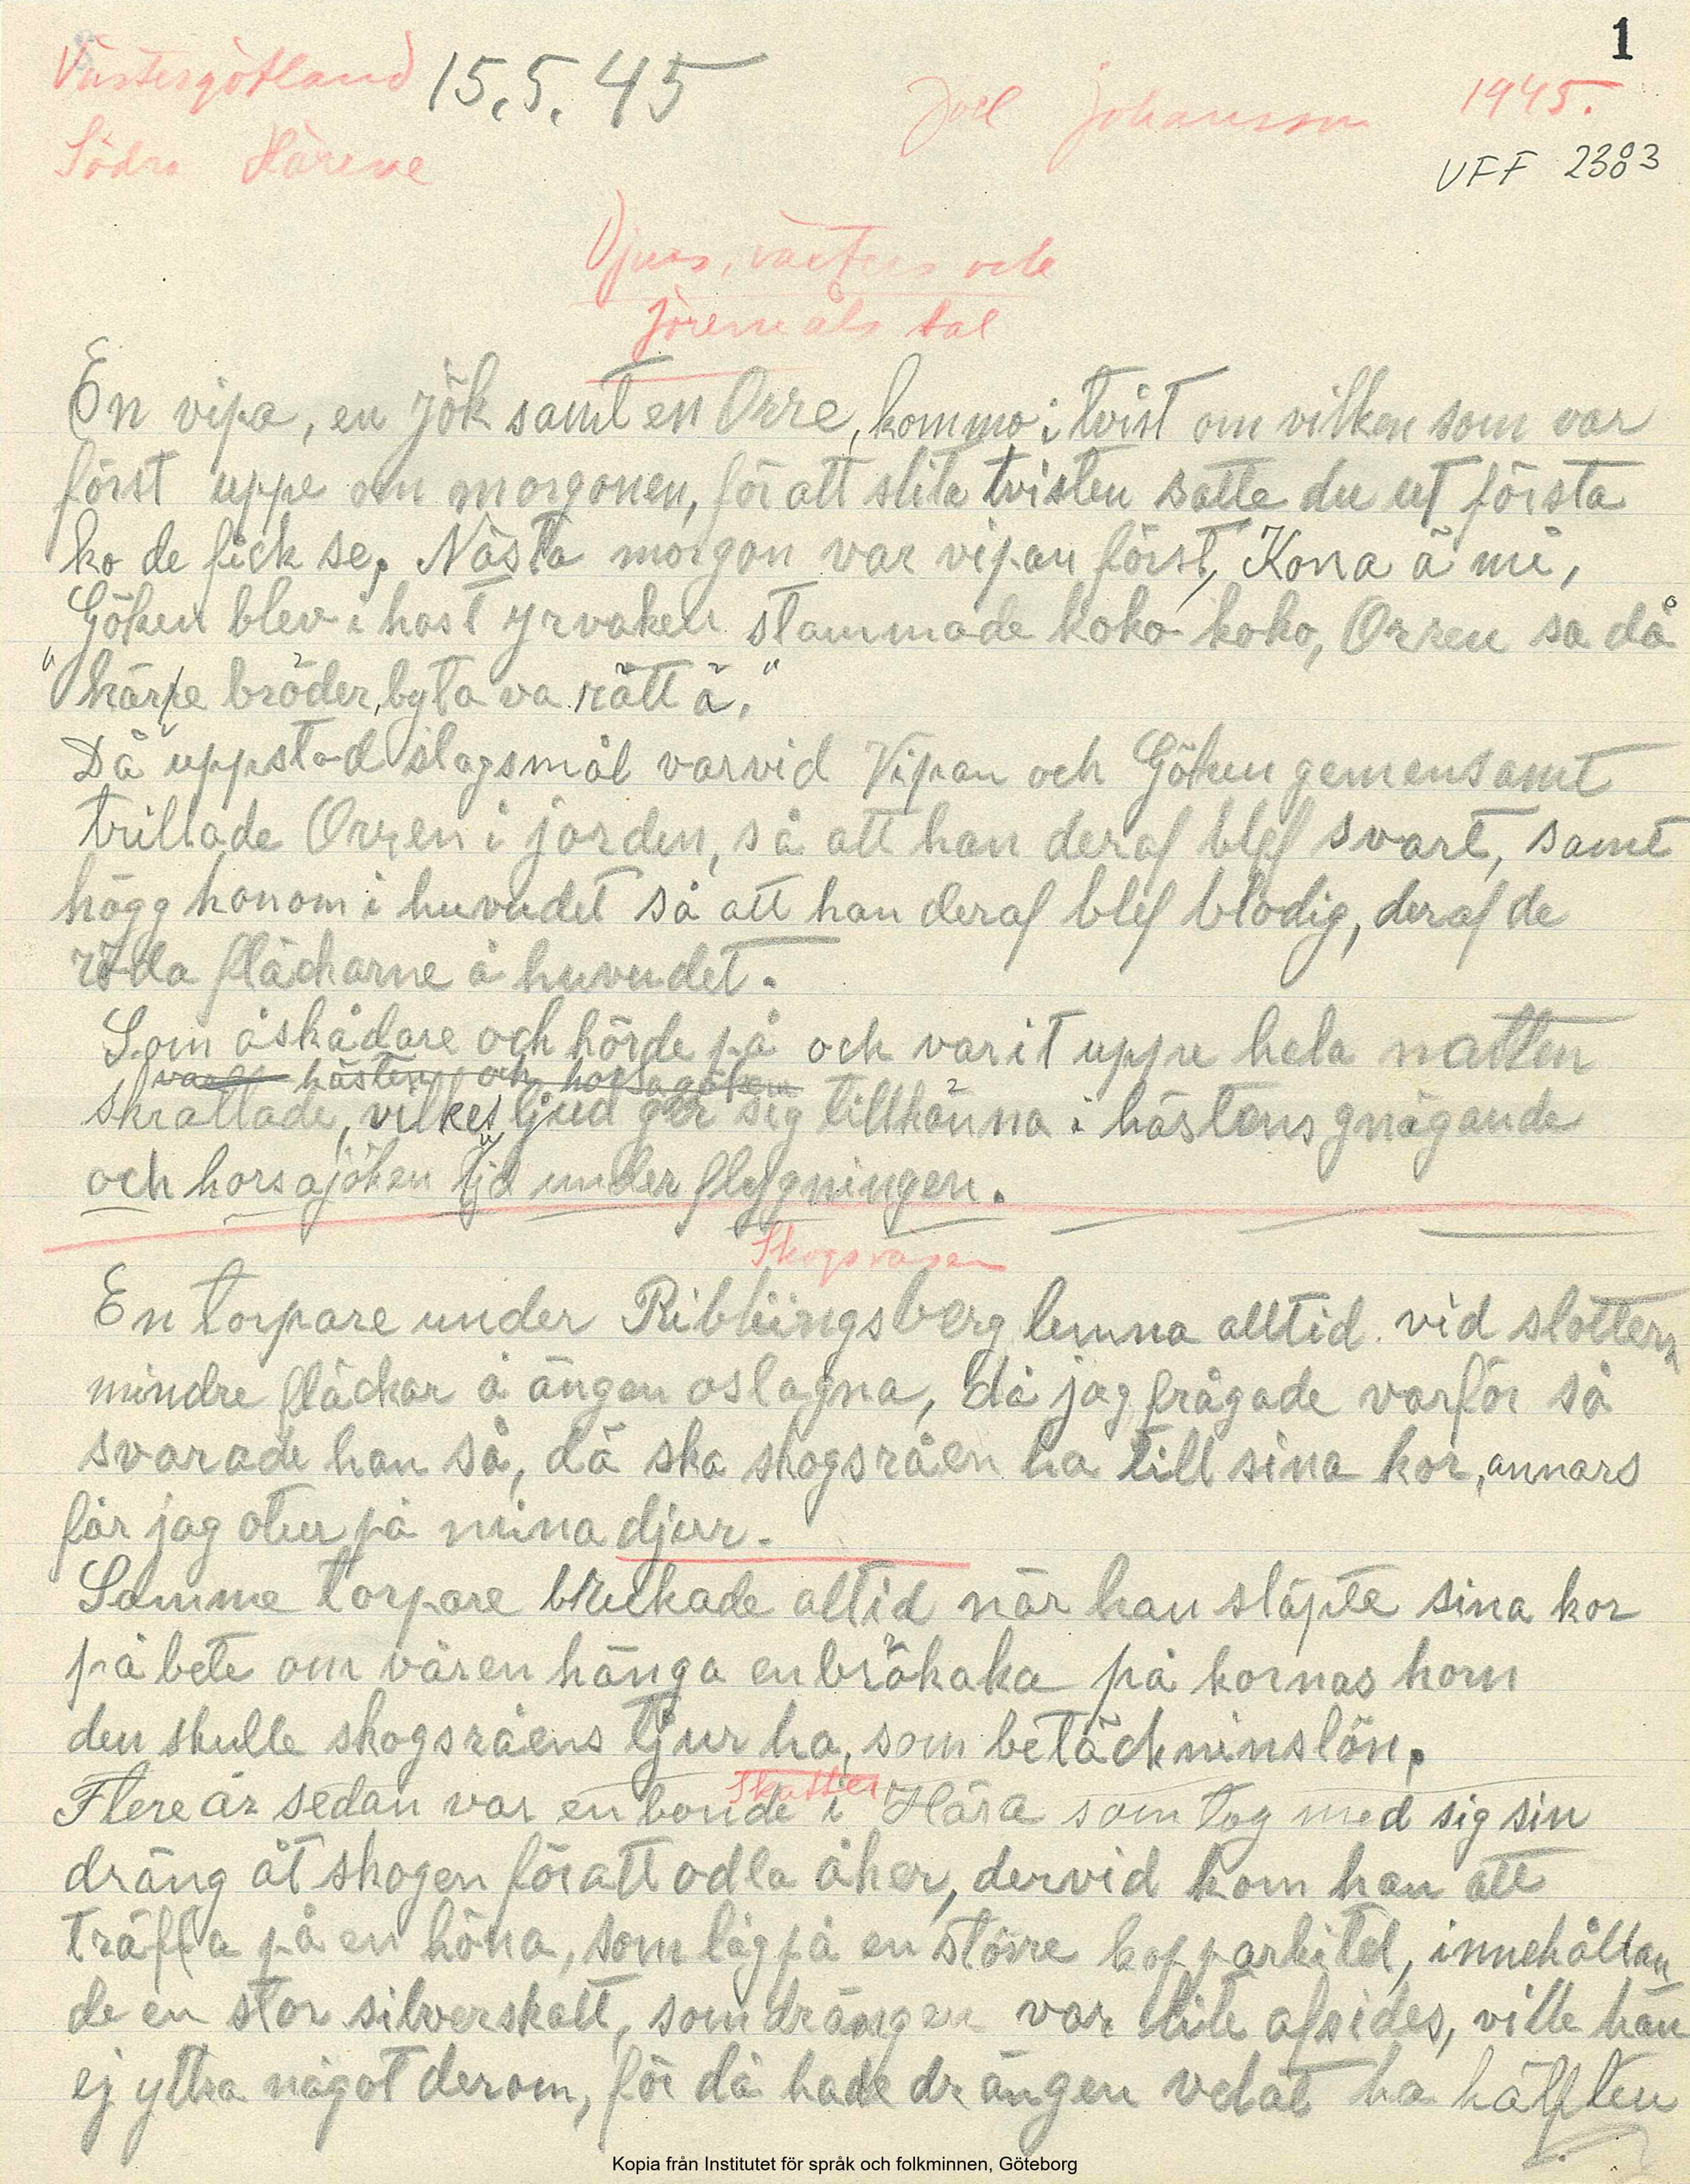 1
Västergötland 15.5.45 Joel Johansson 1945.
Södra Härene VFF 2383
Djurs, växters och
föremåls tal
En vipa, en jök samt en Orre, kommo i tvist om vilken som var
först uppe om morgonen, för att slita tvisten satte du ut första
ko de fick se. Nästa morgon var vipan först, Kona ä mi,
Göken blev i hast yrvaken stammade koko koko, Orren sa då
"kärre bröder, byta va rätt ä."
Då uppstod slagsmål varvid Vipan och Göken gemensamt
trillade Orren i jorden, så att han deraf blef svart, samt
högg honom i huvudet så att han deraf blef blodig, deraf de
röda fläckarne å huvudet.
Som åskådare och hörde på och varit uppe hela natten
hästen och horsagöken
skrattade, vilkes ljud ger sig tillkänna i hästens gnägande
och horsajöken ljud under flygningen.
Skogsväsen
En torpare under Ribbingsberg lemna alltid vid slottern
mindre fläckar å ängen oslagna, då jag frågade varför så
svarade han så, dä ska skogsråen ha till sina kor, annars
får jag otur på mina djur.
Samme torpare brukade altid när han släpte sina kor
på bete om våren hänga en brökaka på kornas horn
den skulle skogsråens tjur ha, som betäckninslön.
Skatter
Flere år sedan var en bonde i Hära som tog med sig sin
dräng åt skogen för att odla åker, dervid kom han att
träffa på en höna, som låg på en större kopparkitel, innehållan
de en stor silverskatt, som drängen var lite afsides, ville han
ej yttra något derom, för då hade drängen velat ha hälften
Kopia från Institutet för språk och folkminnen, Göteborg